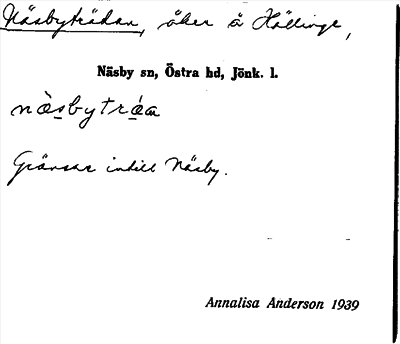 Näsbyträdan, åker å Hällinge,
Näsby sn, Östra hd, Jönk. l.
näsbytráa
Gränsar intill Näsby.
Annalisa Anderson 1939